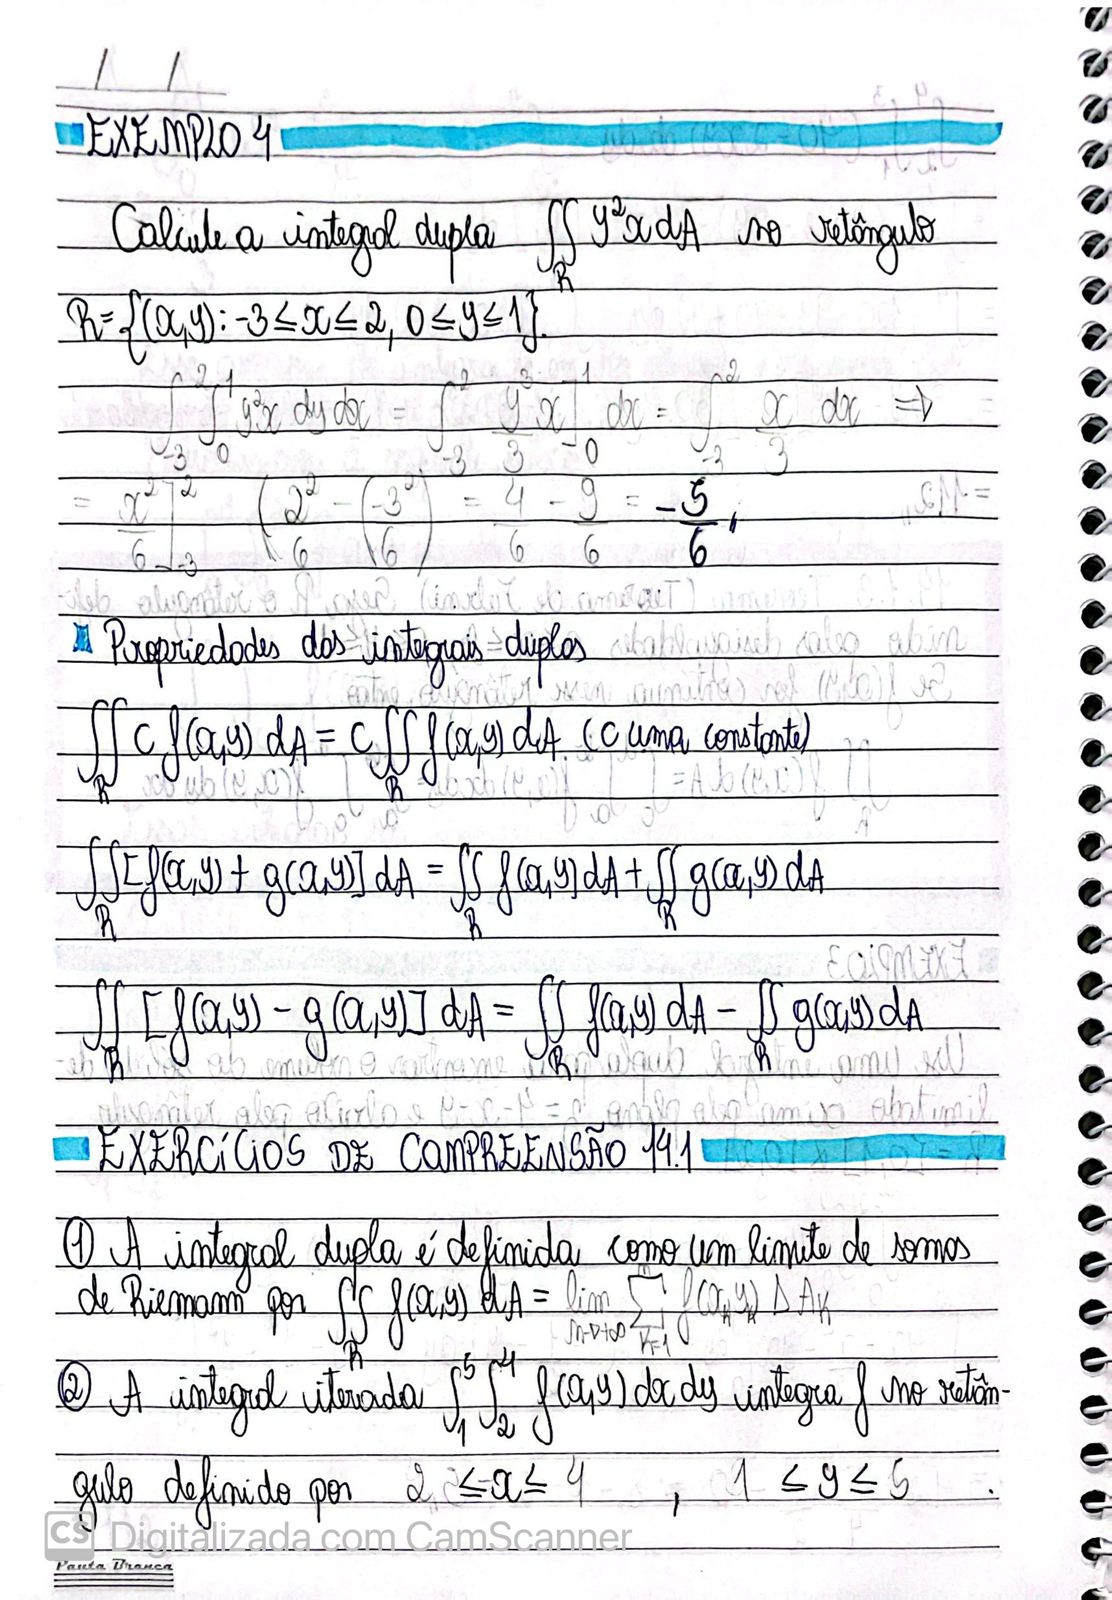 / /
EXEMPLO 4
Calcule a integral dupla ∬_R y²x dA no retângulo
R = {(x,y): -3 ≤ x ≤ 2, 0 ≤ y ≤ 1}.
∫_{-3}^{2} ∫_{0}^{1} y²x dy dx = ∫_{-3}^{2} y³/3 x]_{0}^{1} dx = ∫_{-3}^{2} x/3 dx ⇒
= x²/6]_{-3}^{2} (2²/6 - (-3²/6) = 4/6 - 9/6 = -5/6 //
Propriedades das integrais duplas
∬_R c f(x,y) dA = c ∬_R f(x,y) dA. (c uma constante)
∬_R [f(x,y) + g(x,y)] dA = ∬_R f(x,y] dA + ∬_R g(x,y) dA
∬_R [f(x,y) - g(x,y)] dA = ∬_R f(x,y) dA - ∬_R g(x,y) dA
EXERCÍCIOS DE COMPREENSÃO 14.1
① A integral dupla é definida como um limite de somas
de Riemann por ∬_R f(x,y) dA = lim_{n→+∞} ∑_{k=1}^{n} f(x_k, y_k) ΔA_k
② A integral iterada ∫_{1}^{5} ∫_{2}^{4} f(x,y) dx dy integra f no retân-
gulo definido por 2 ≤ x ≤ 4 , 1 ≤ y ≤ 5 .
CS Digitalizada com CamScanner
Pauta Branca